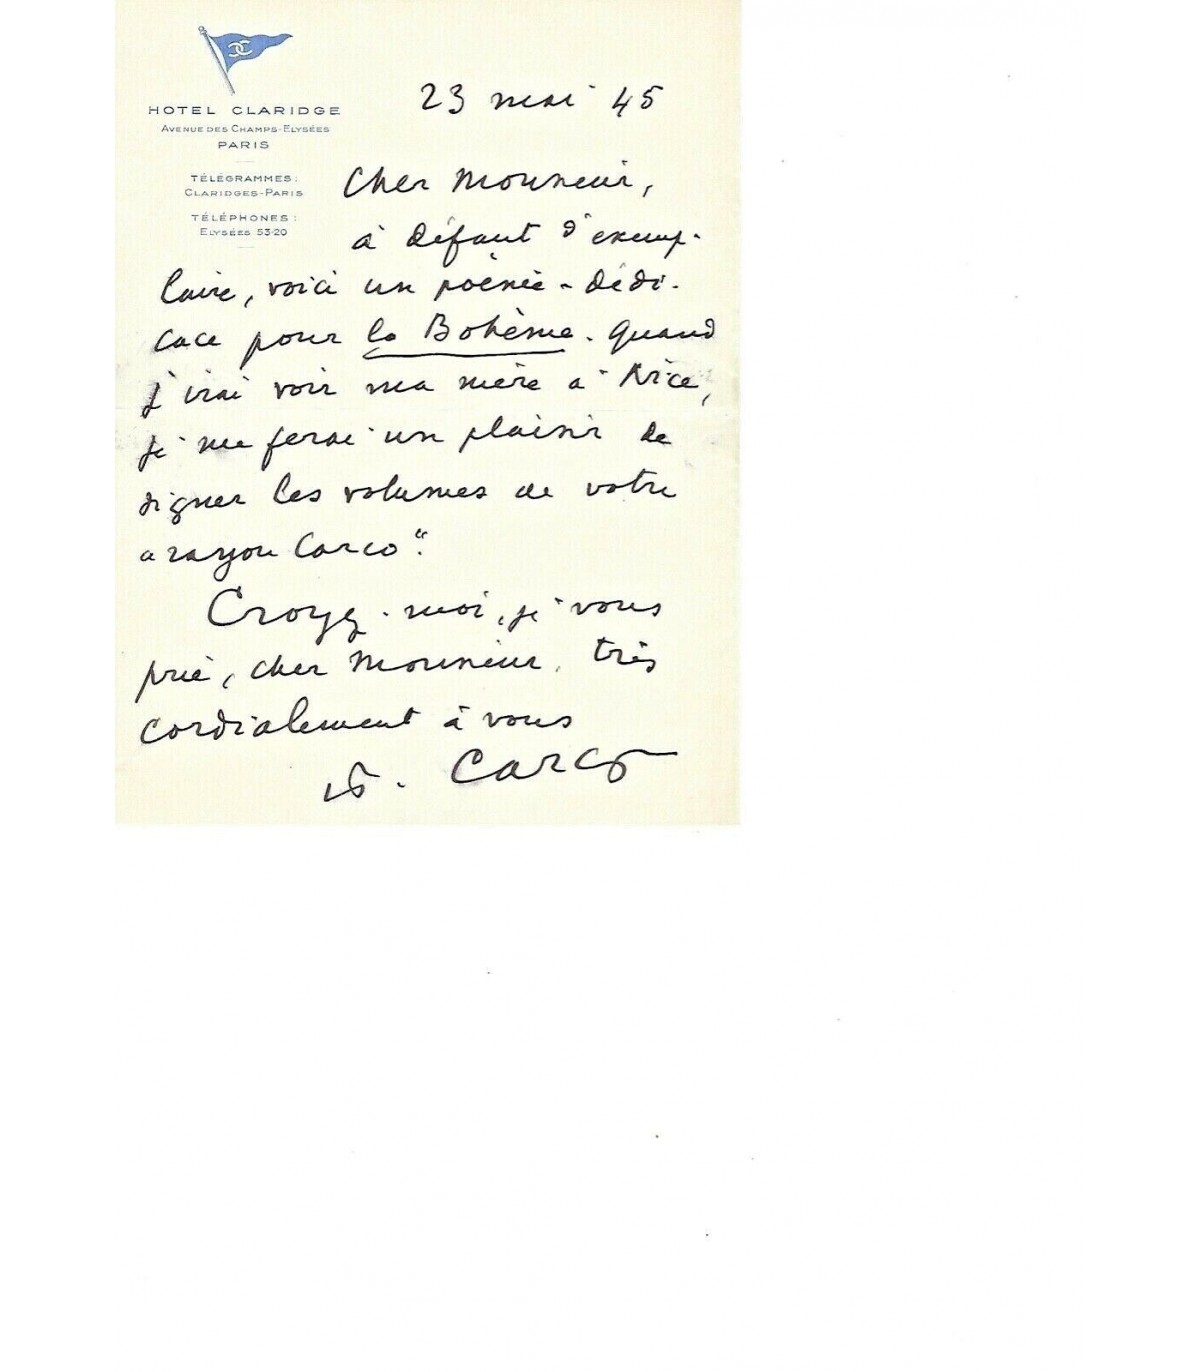 HOTEL CLARIDGE
AVENUE DES CHAMPS-ELYSÉES
PARIS
TÉLÉGRAMMES:
CLARIDGES-PARIS
TÉLÉPHONES:
ELYSÉES 53-20
23 mai 45
Cher Monsieur,
à défaut d'exemp-
laire, voici un poème-dédi-
cace pour la Bohème. Quand
j'irai voir ma mère à Nice,
je me ferai un plaisir de
signer les volumes de votre
"rayon Carco".
Croyez-moi, je vous
prie, cher Monsieur, très
cordialement à vous
F. Carco